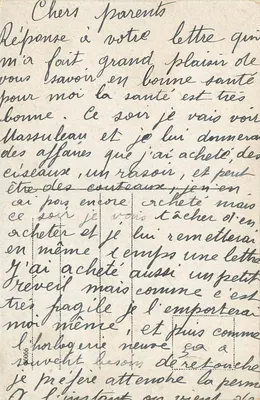 Chers parents
Réponse à votre lettre qui
m'a fait grand plaisir de
vous savoir en bonne santé
pour moi la santé est très
bonne. Ce soir je vais voir
Massuleau et je lui donnerai
des affaires que j'ai acheté, des
ciseaux, un rasoir, et peut
être des couteaux, je n'en
ai pas encore acheté mais
ce soir je vais tâcher d'en
acheter et je lui remetterai
en même temps une lettre
J'ai acheté aussi un petit
réveil mais comme c'est
très fragile je l'emporterai
moi même, et puis comme
l'horlogerie neuve ça a
souvent besoin de retouche
je préfère attendre la perm
A l'instant on vient de